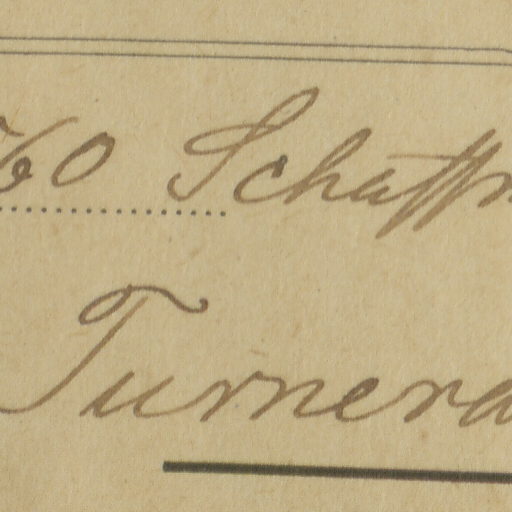 60 Schaffn
Turnera